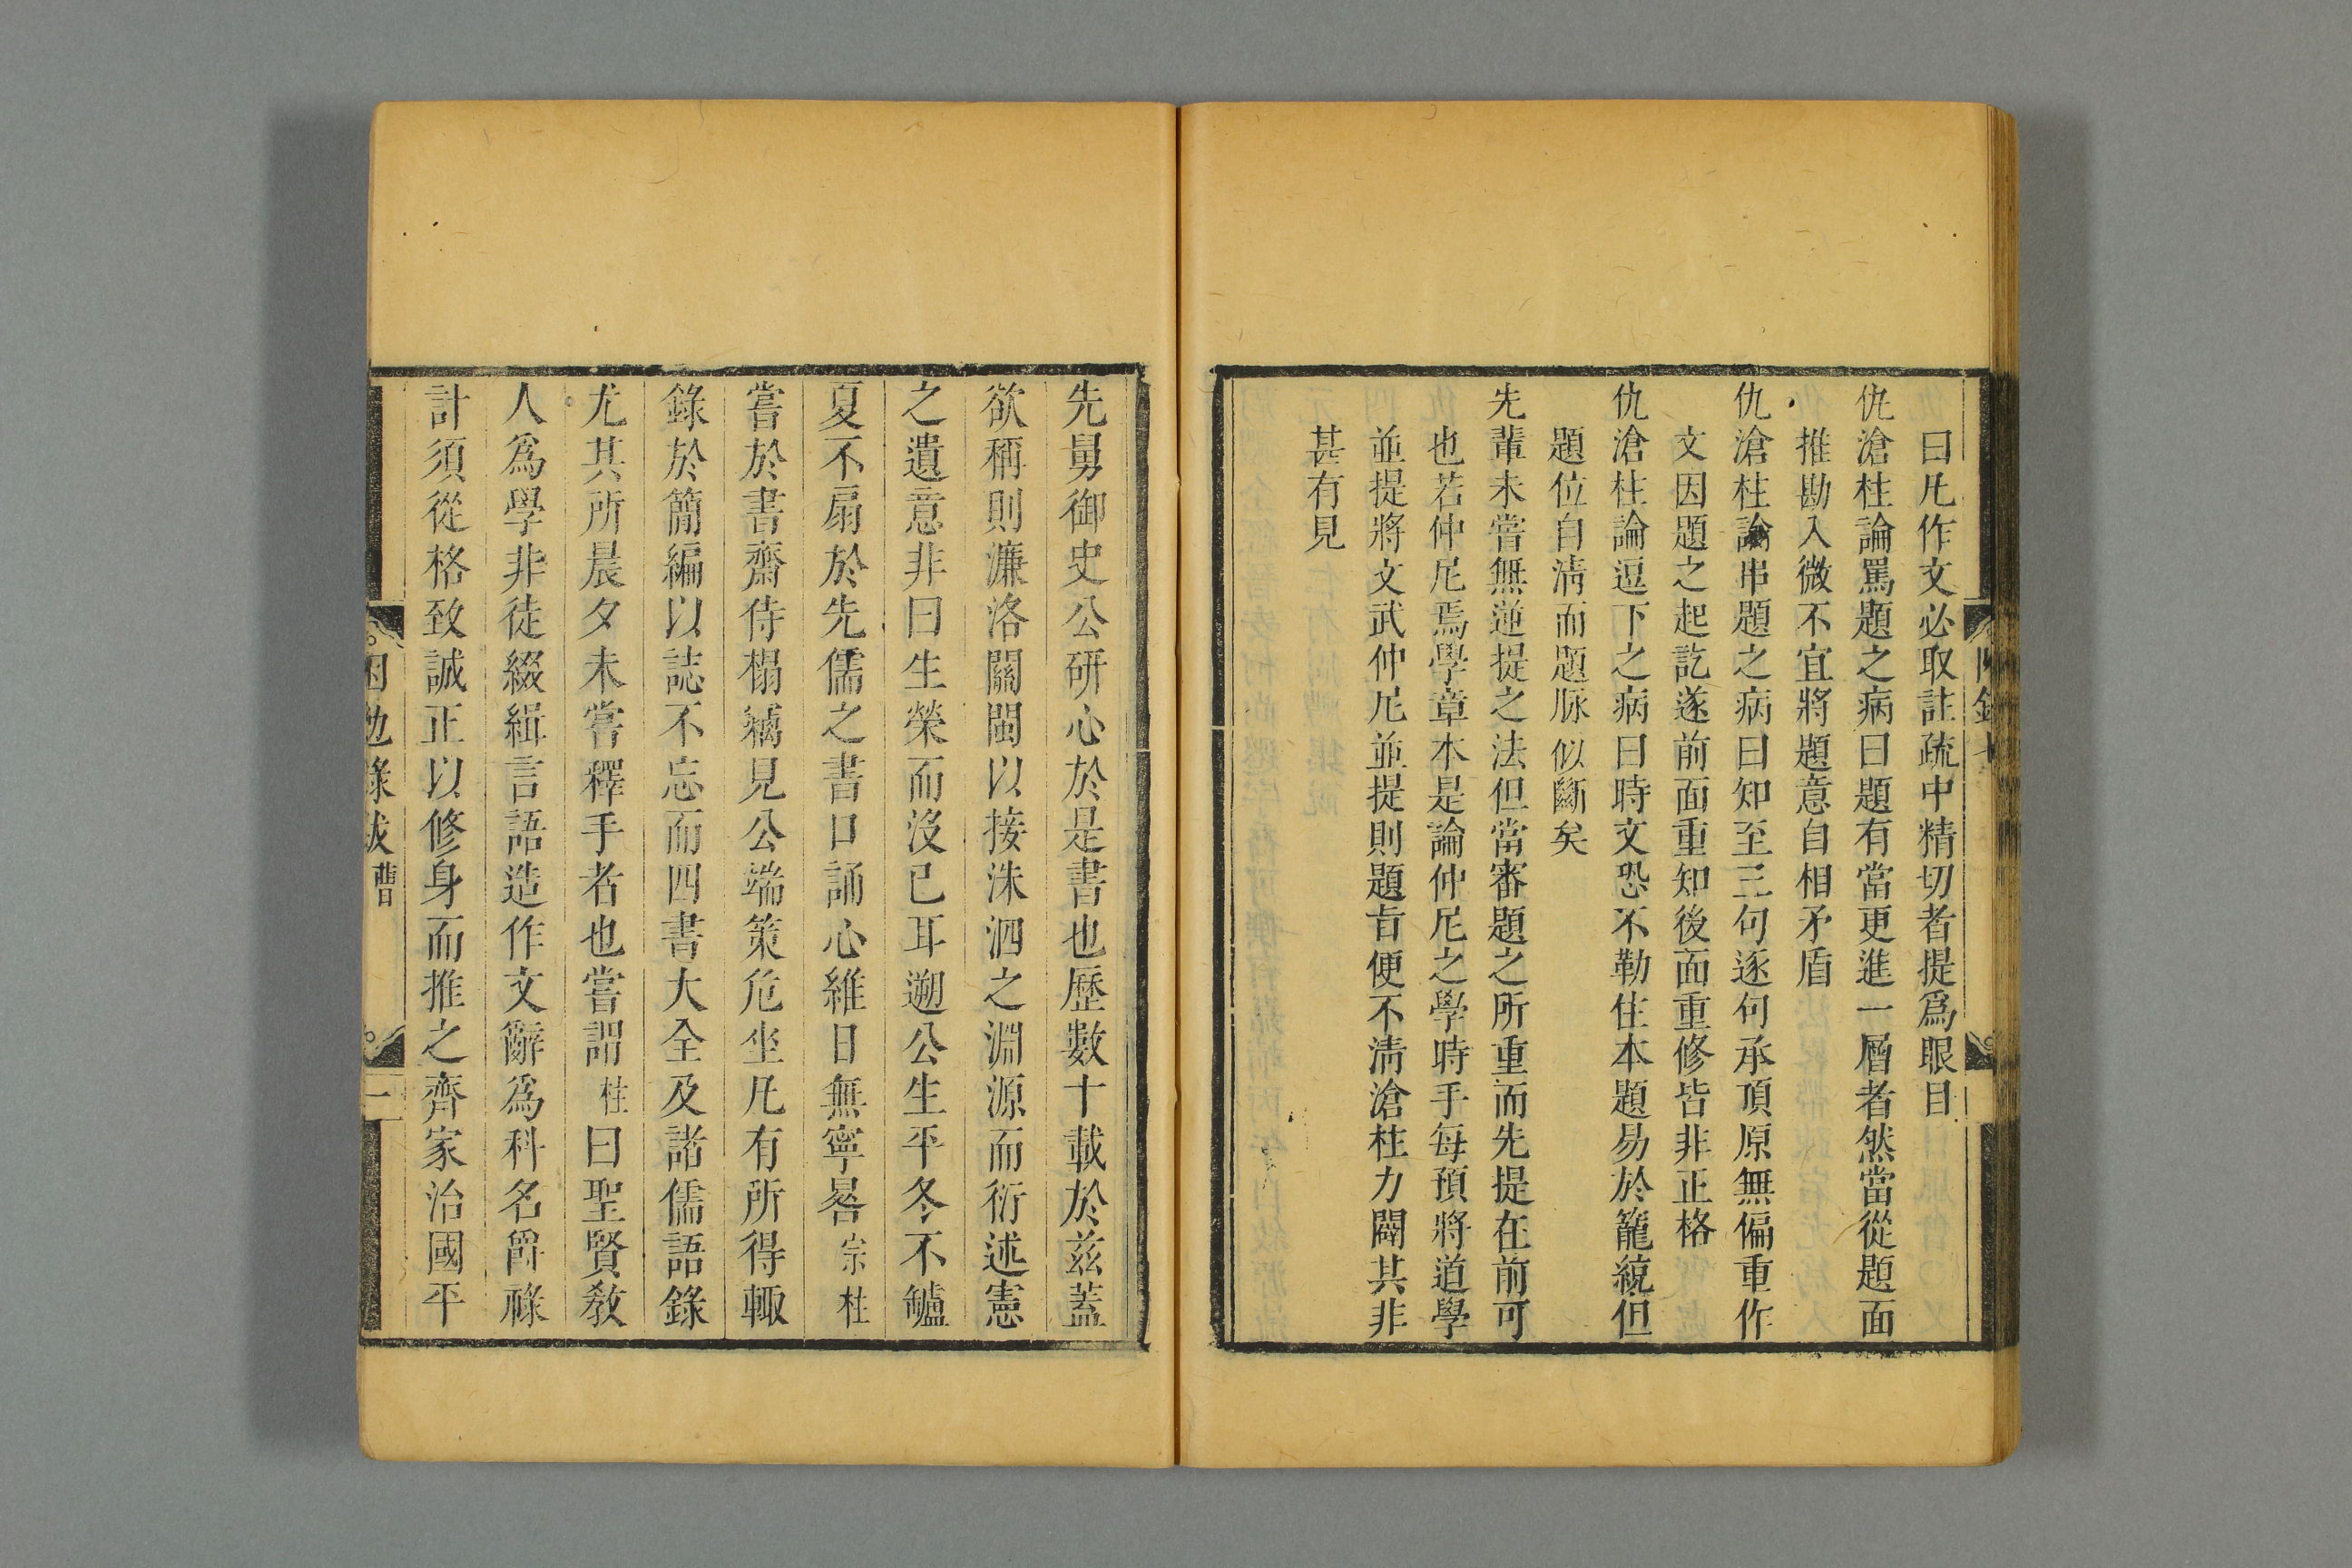 曰凡作文必取註疏中精切者提爲眼目
仇滄柱論罵題之病曰題有當更進一層者然當從題面
推勘入微不宜將題意自相矛盾
仇滄柱論串題之病曰知至三句逐句承頂原無偏重作
文因題之起訖遂前面重知後面重修皆非正格
仇滄柱論逗下之病曰時文恐不勒住本題易於籠統但
題位自淸而題脉似斷矣
先輩未嘗無並提之法但當審題之所重而先提在前可
也若仲尼焉學章本是論仲尼之學時手每預將道學
並提將文武仲尼並提則題旨便不淸滄柱力闢其非
甚有見
先舅御史公研心於是書也歷數十載於茲蓋
欲稱則濂洛關閩以接洙泗之淵源而衍述憲
之遺意非曰生榮而沒已耳遡公生平冬不鑪
夏不扇於先儒之書口誦心維日無寧晷宗柱
嘗於書齋侍榻竊見公端策危坐凡有所得輙
錄於簡編以誌不忘而四書大全及諸儒語錄
尤其所晨夕未嘗釋手者也嘗謂柱曰聖賢教
人爲學非徒綴緝言語造作文辭爲科名爵祿
計須從格致誠正以修身而推之齊家治國平
困勉錄跋 曹 一